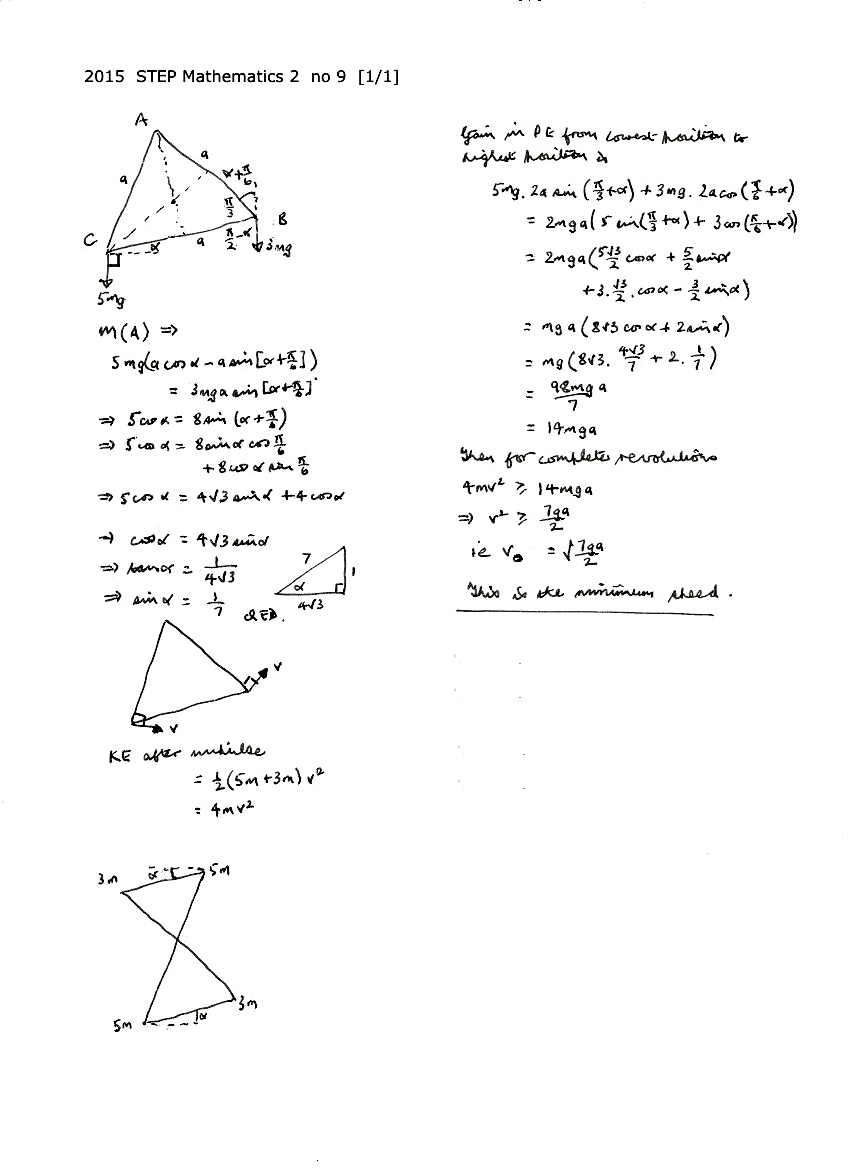 2015 STEP Mathematics 2 no 9 [1/1]
A
a
a
α+π/6
π/3
B
C
α
a
π/2-α
3mg
5mg
M(A) ⇒
5mg(a cos α - a sin[α+π/6])
= 3mga sin[α+π/6]
⇒ 5cos α = 8 sin (α+π/6)
⇒ 5cos α = 8 sin α cos π/6
+ 8 cos α sin π/6
⇒ 5 cos α = 4√3 sin α + 4 cos α
⇒ cos α = 4√3 sin α
⇒ tan α = 1/4√3
⇒ sin α = 1/7 QED.
7
1
α
4√3
v
v
KE after impulse
= ½(5m+3m)v²
= 4mv²
3m
α
5m
3m
5m
α
Gain in PE from lowest position to
highest position is
5mg. 2a sin (π/3+α) + 3mg. 2a cos (π/6+α)
= 2mga(5 sin(π/3+α) + 3cos(π/6+α))
= 2mga(5√3/2 cos α + 5/2 sin α
+3.√3/2.cos α - 3/2 sin α)
= mga(8√3 cos α + 2 sin α)
= mg(8√3. 4√3/7 + 2. 1/7)
= 98mga/7
= 14mga
Then for complete revolutions
4mv² ≥ 14mga
⇒ v² ≥ 7ga/2
ie v₀ = √7ga/2
This is the minimum speed.